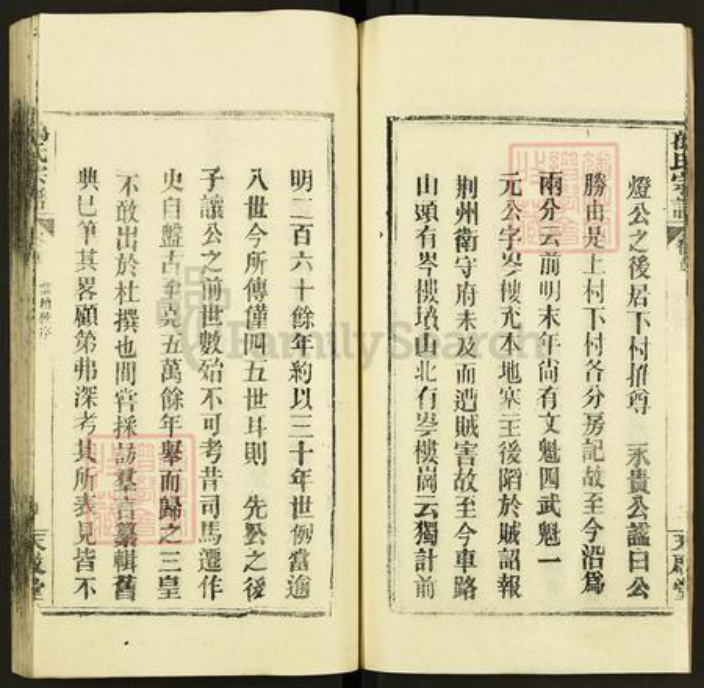 燈公之後居下村推尊 永貴公諡曰公
勝由是上村下村各分房記故至今沿為
兩分云前明末年尙有文魁四武魁一
元公字岑樓充本地寨王後陷於賊詔報
荆州衛守府未及而遭賊害故至今車路
山頭有岑樓墳山北有岑樓崗云獨計前
明二百六十餘年約以三十年世例當逾
八世今所傳僅四五世耳則 先公之後
子讓公之前世數殆不可考昔司馬遷作
史自盤古至堯五萬餘年舉而歸之三皇
不敢出於杜撰也間嘗採訪羣言纂輯舊
典已筆其畧顧第弗深考其所表見皆不
氏宗譜
天啟堂
FamilySearch